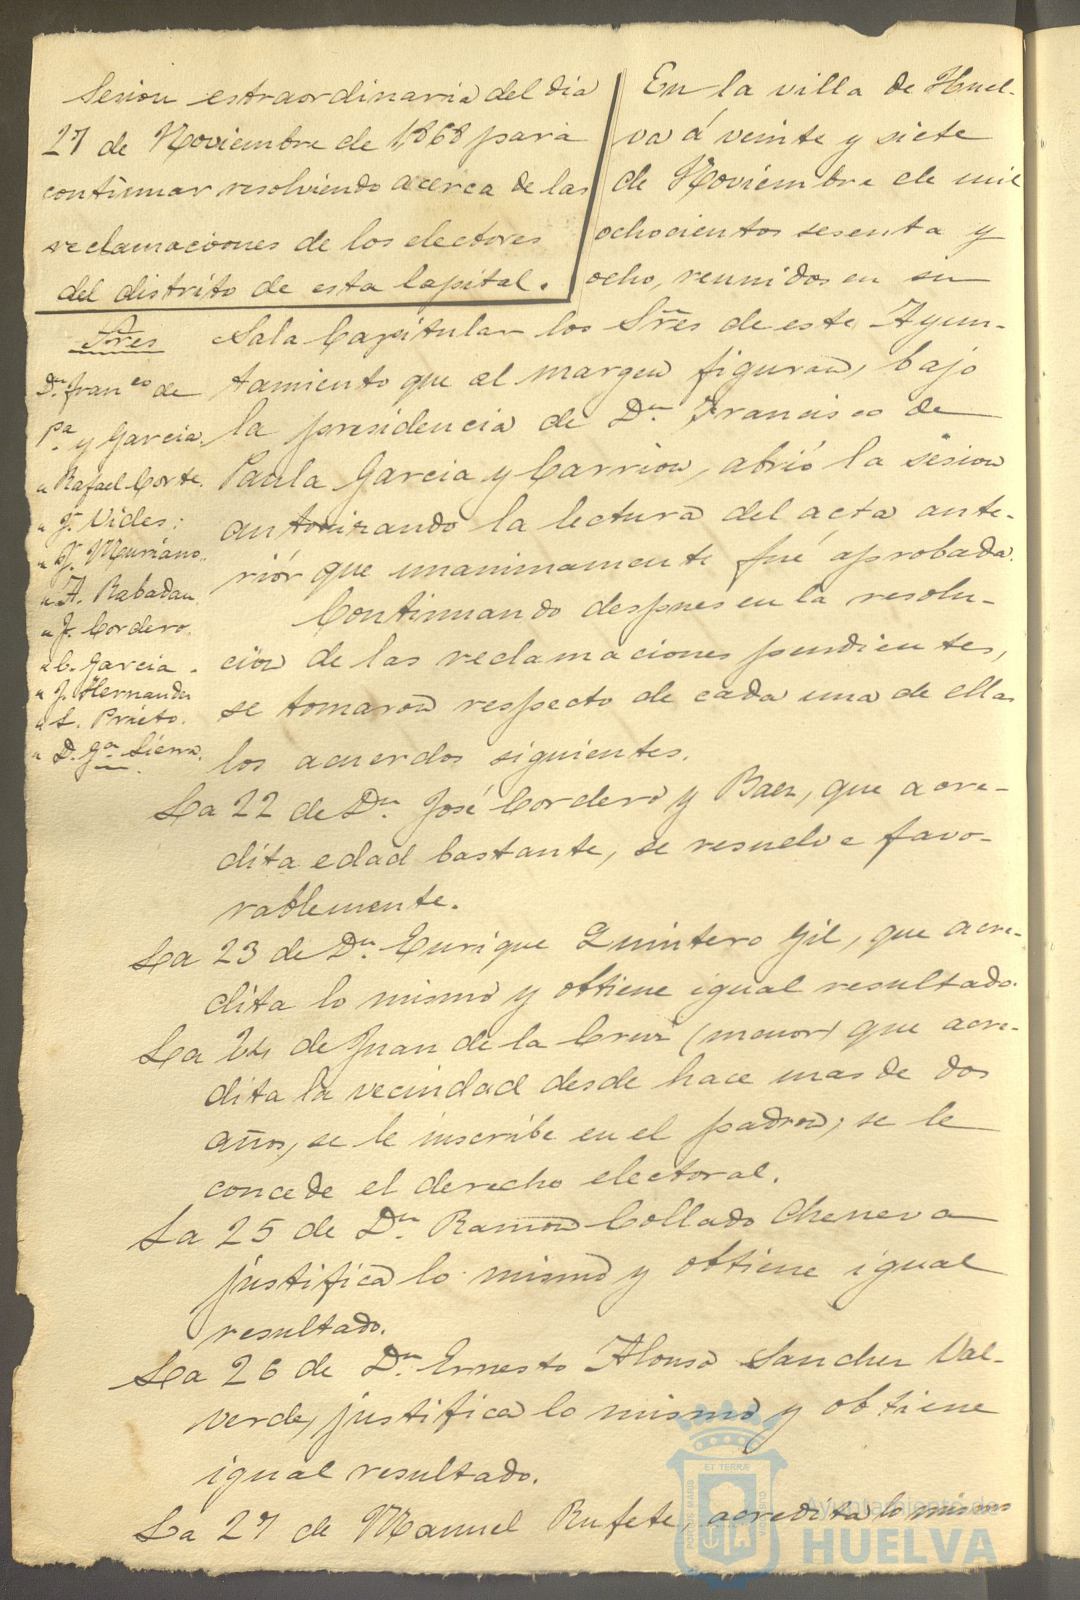 Sesion estraordinaria del dia
27 de Noviembre de 1868 para
continuar resolviendo acerca de las
reclamaciones de los electores
del distrito de esta Capital.
En la villa de Huel-
va á veinte y siete
de Noviembre de mil
ochocientos sesenta y
ocho, reunidos en su
Sala Capitular los Sres de este Ayun-
tamiento que al margen figuran, bajo
la presidencia de Dn. Francisco de
Paula Garcia y Carrion, abrió la sesion
autorizando la lectura del acta ante-
riór que unanimamente fué aprobada.
Continuando despues en la resolu-
cion de las reclamaciones pendientes,
se tomaron respecto de cada una de ellas
los acuerdos siguientes.
Sres
Dn. Franco de
Pa. y Garcia.
" Rafael Corte.
" J. Vides.
" J. Muriano.
" A. Rabadan.
" J. Cordero.
" C. Garcia.
" J. Hernandez
" L. Prieto.
" D. Ga. Sierra.
La 22 de Dn. José Cordero y Baez, que acre-
dita edad bastante, se resuelve favo-
rablemente.
La 23 de Dn. Enrique Quintero Gil, que acre-
dita lo mismo y obtiene igual resultado.
La 24 de Juan de la Cruz (menor) que acre-
dita la vecindad desde hace mas de dos
años, se le inscribe en el padron; se le
concede el derecho electoral.
La 25 de Dn. Ramon Collado Cheneva
justifica lo mismo y obtiene igual
resultado.
La 26 de Dn. Ernesto Alonso Sanchez Val-
verde, justifica lo mismo y obtiene
igual resultado.
La 27 de Manuel Rufete, acredita lo mismo
ET TERRÆ
PORTUS MARIS
CUSTODIA
Ayuntamiento de
HUELVA